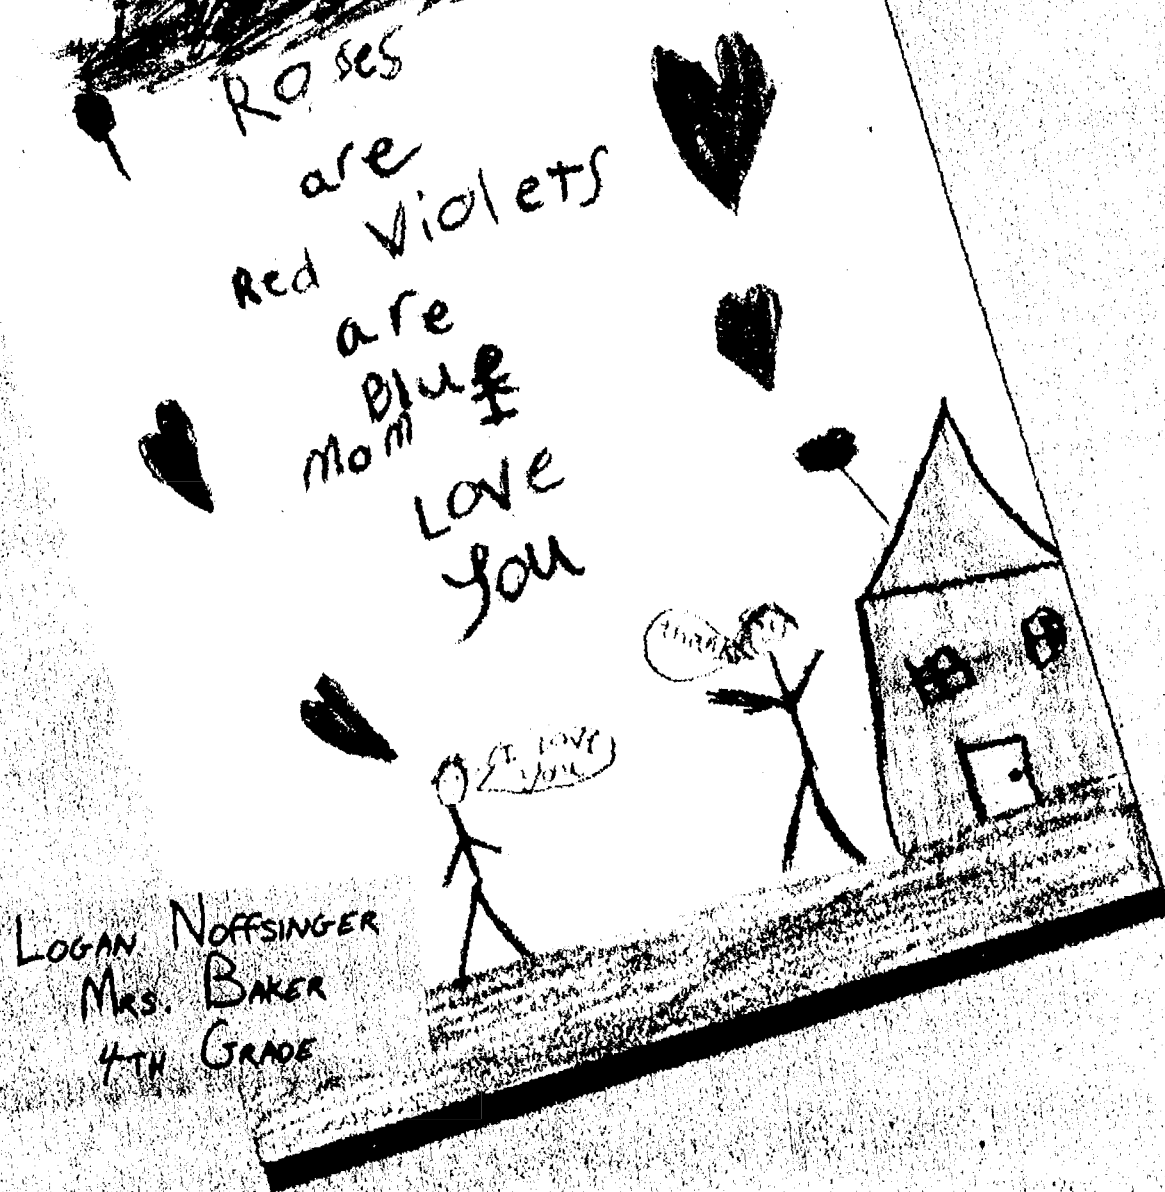 Roses
are
Red Violets
are
Blue
Mom I
Love
You
thanks
I love
you
LOGAN NOFFSINGER
MRS. BAKER
4TH GRADE